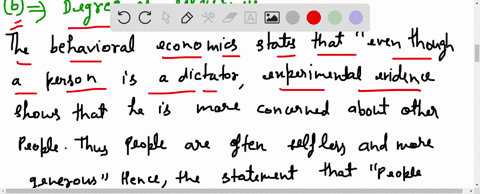 (b) ⇒ Degree of
The behavioral economics states that "even though
a person is a dictator, experimental evidence
shows that he is more concerned about other
People. Thus people are often selfless and more
generous" Hence, the statement that "People